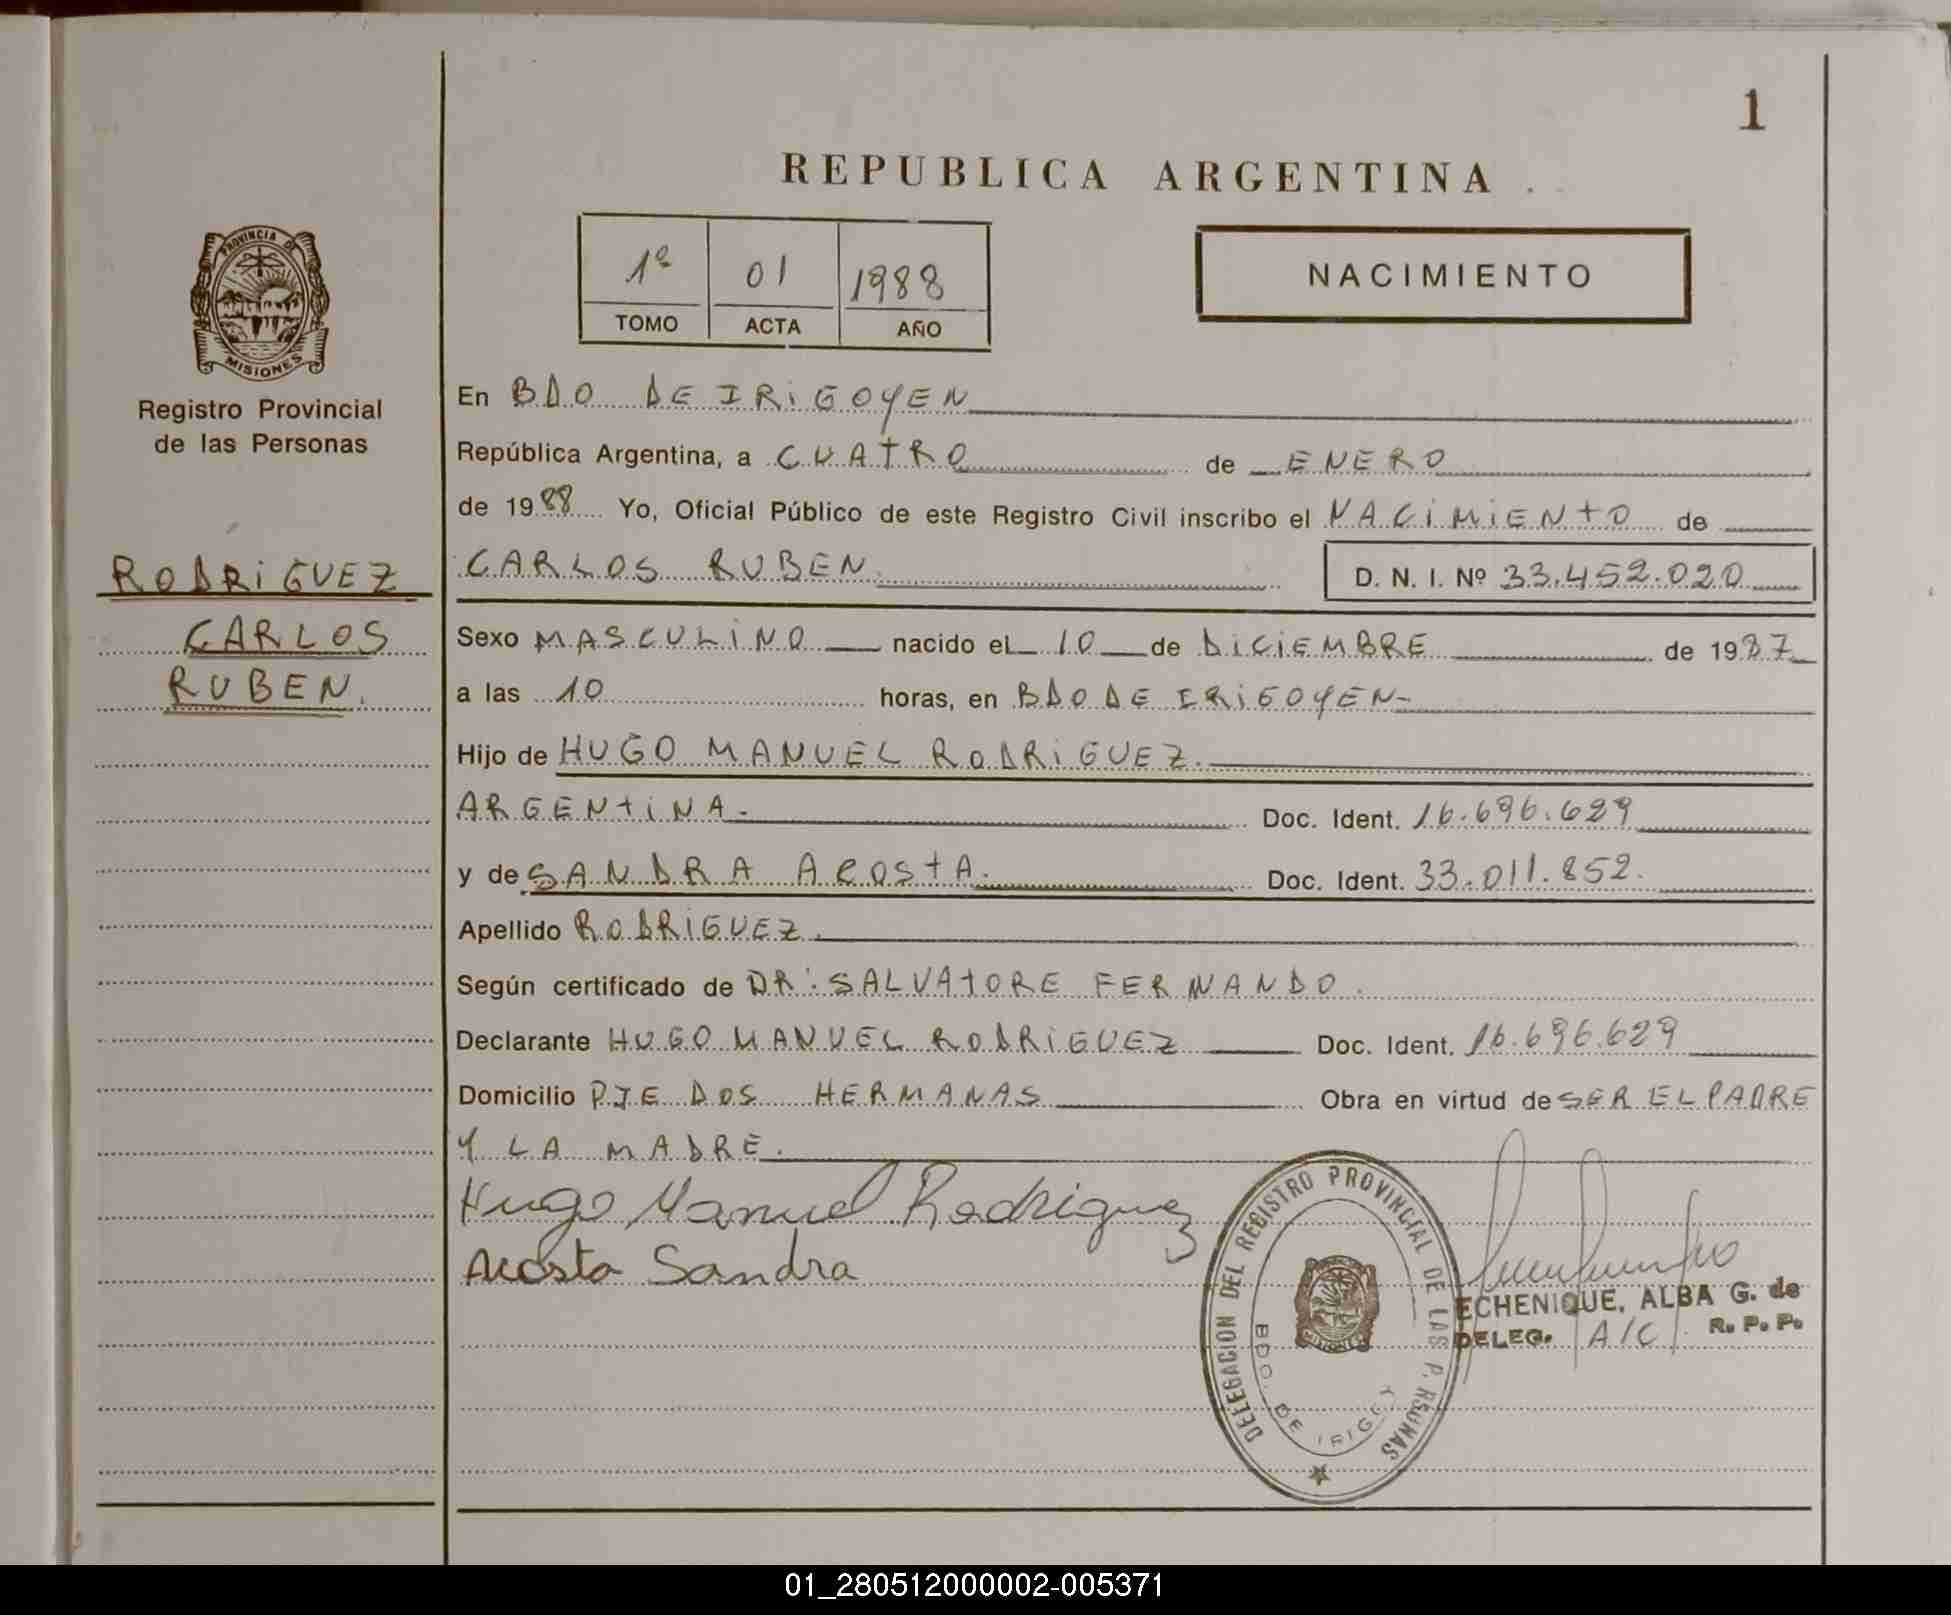 1
REPUBLICA ARGENTINA
1º 01 1988
TOMO ACTA AÑO
NACIMIENTO
PROVINCIA DE
MISIONES
Registro Provincial
de las Personas
RODRIGUEZ
CARLOS
RUBEN.
En BDO DE IRIGOYEN
República Argentina, a CUATRO de ENERO
de 1988 Yo, Oficial Público de este Registro Civil inscribo el NACIMIENTO de
CARLOS RUBEN D. N. I. Nº 33.452.020
Sexo MASCULINO nacido el 10 de DICIEMBRE de 1987
a las 10 horas, en BDO DE IRIGOYEN-
Hijo de HUGO MANUEL RODRIGUEZ.
ARGENTINA. Doc. Ident. 16.696.629
y de SANDRA ACOSTA. Doc. Ident. 33.011.852.
Apellido RODRIGUEZ.
Según certificado de DR: SALVATORE FERNANDO.
Declarante HUGO MANUEL RODRIGUEZ Doc. Ident. 16.696.629
Domicilio PJE DOS HERMANAS Obra en virtud de SER EL PADRE
Y LA MADRE.
Hugo Manuel Rodriguez
Acosta Sandra
DELEGACION DEL REGISTRO PROVINCIAL DE LAS P. RSONAS
BDO. DE IRIGOY
ECHENIQUE, ALBA G. de
DELEG. A/C R. P. P.
01_280512000002-005371